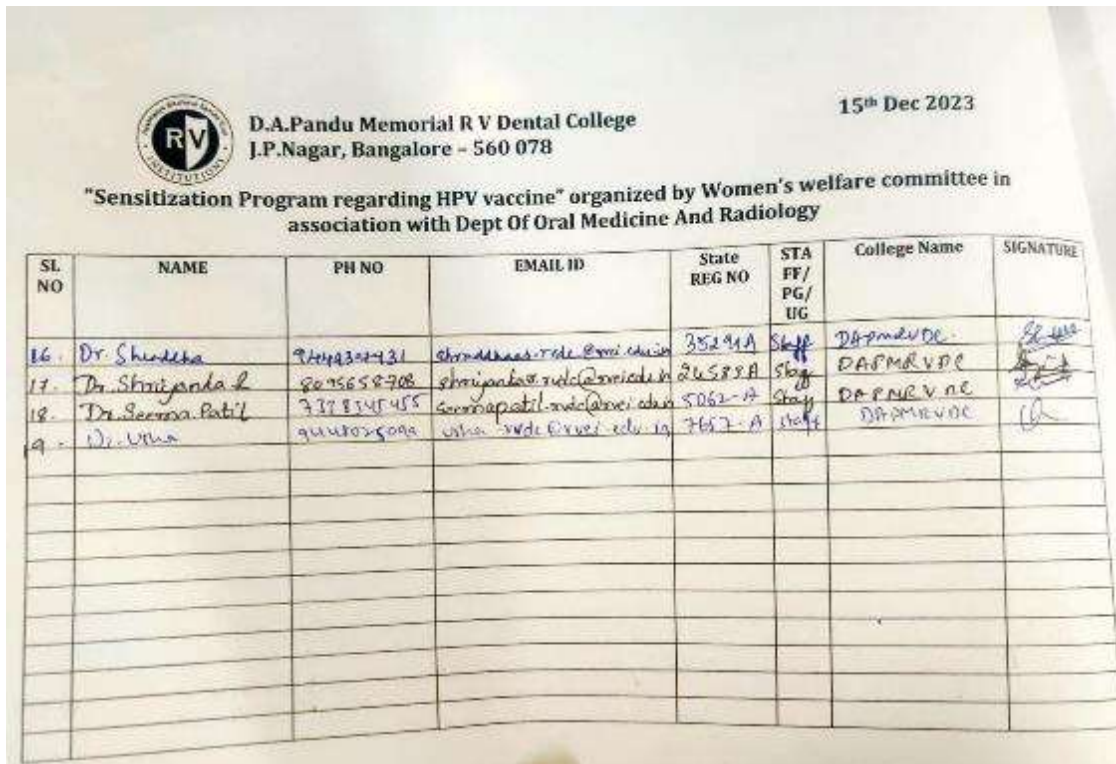 RV
INSTITUTIONS
D.A.Pandu Memorial R V Dental College
J.P.Nagar, Bangalore – 560 078
15th Dec 2023
"Sensitization Program regarding HPV vaccine" organized by Women's welfare committee in
association with Dept Of Oral Medicine And Radiology
SL NO NAME PH NO EMAIL ID State REG NO STAFF/PG/UG College Name SIGNATURE
16. Dr. 35291A Staff DAPMRVDC.
17. Dr. 8095658708 26588A Staff DAPMRVDC
18. Dr. Seema Patil 7378345455 seemapatil.rvdc@rvei.edu.in 5062-A Staff DAPMRVDC
19. Dr. Usha usha.rvdc@rvei.edu.in 7657-A Staff DAPMRVDC